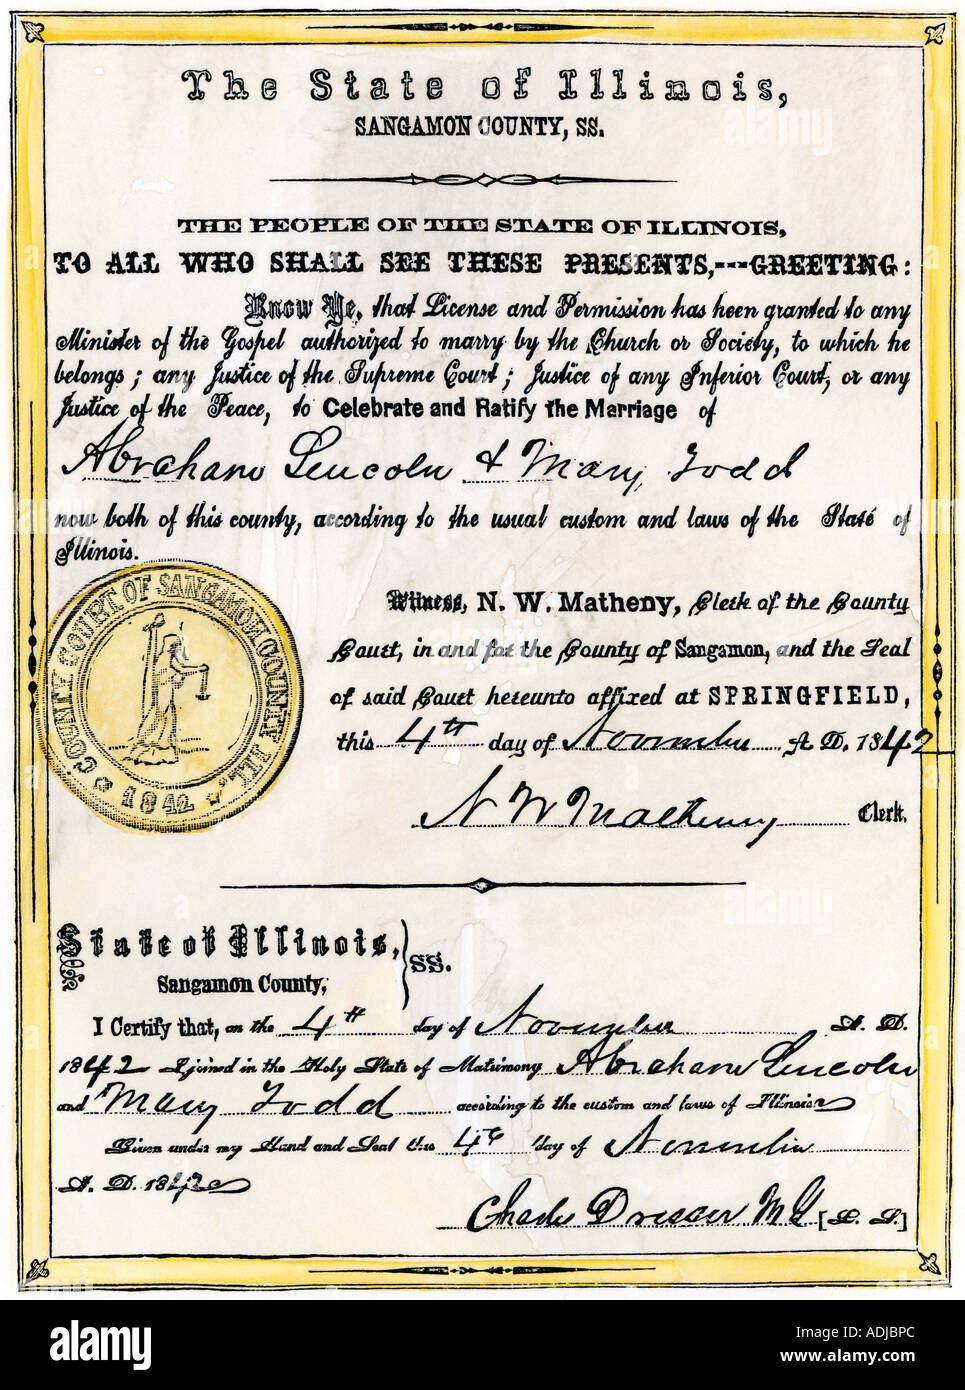 The State of Illinois,
SANGAMON COUNTY, SS.
THE PEOPLE OF THE STATE OF ILLINOIS,
TO ALL WHO SHALL SEE THESE PRESENTS,---GREETING:
Know Ye, that License and Permission has been granted to any
Minister of the Gospel authorized to marry by the Church or Society, to which he
belongs; any Justice of the Supreme Court; Justice of any Inferior Court, or any
Justice of the Peace, to Celebrate and Ratify the Marriage of
Abraham Lincoln & Mary Todd
now both of this county, according to the usual custom and laws of the State of
Illinois.
COUNTY COURT OF SANGAMON COUNTY ILL.
1842
Witness, N. W. Matheny, Clerk of the County
Court, in and for the County of Sangamon, and the Seal
of said Court hereunto affixed at SPRINGFIELD,
this 4th day of November A. D. 1842
N W Matheny Clerk.
State of Illinois,
Sangamon County, } SS.
I Certify that, on the 4th day of November A. D.
1842 I joined in the Holy State of Matrimony Abraham Lincoln
and Mary Todd according to the custom and laws of Illinois
Given under my Hand and Seal this 4th day of November
A. D. 1842
Charles Dresser M G [L. S.]
alamy
alamy
alamy
Image ID: ADJBPC
www.alamy.com